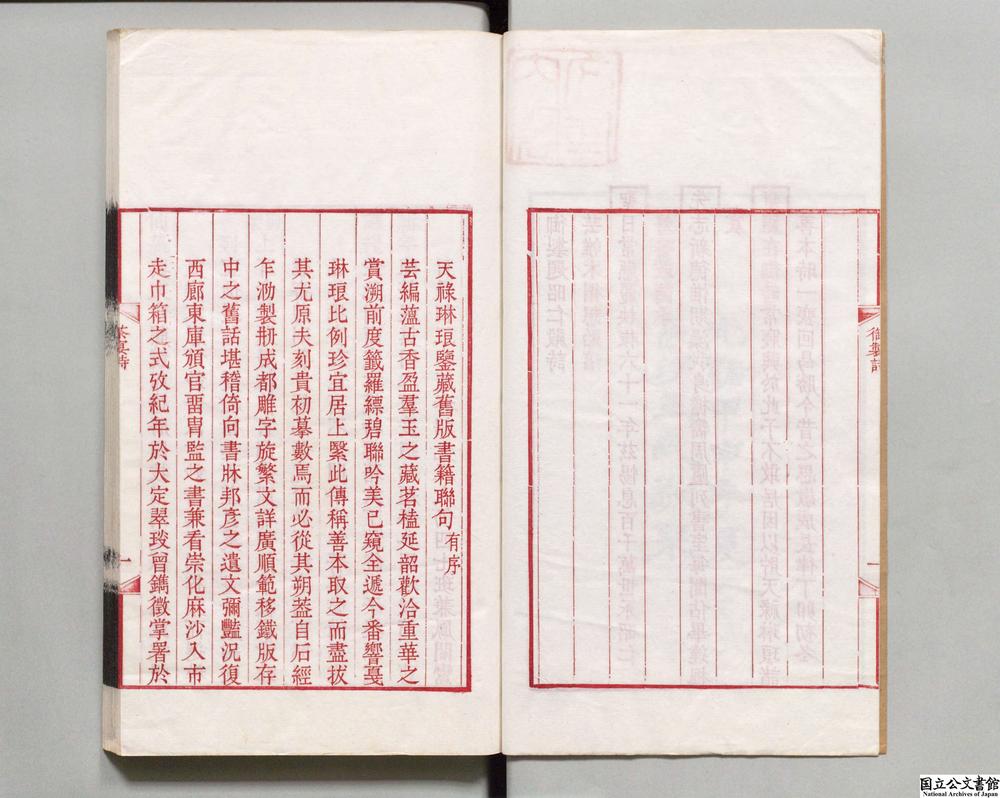 御製詩
一
天祿琳琅鑒藏舊版書籍聯句有序
芸編薀古香盈羣玉之藏茗榼延韶歡洽重華之
賞溯前度籤羅縹碧聯吟美已窺全遞今番響戛
琳琅比例珍宜居上緊此傳稱善本取之而盡拔
其尤原夫刻貴初摹數焉而必從其朔葢自石經
乍泐製册成都雕字旋繁文詳廣順範移鐵版存
中之舊話堪稽倚向書牀邦彥之遺文彌豔況復
西廊東庫頒官畱胄監之書兼看崇化麻沙入市
走巾箱之式攷紀年於大定翠珉曾鐫徵掌署於
茶宴詩
一
国立公文書館
National Archives of Japan